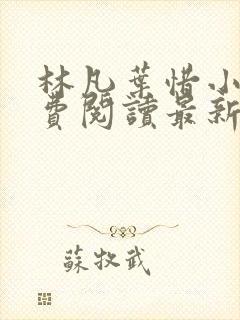 林凡葉惜小
費閱讀最新
蘇牧武